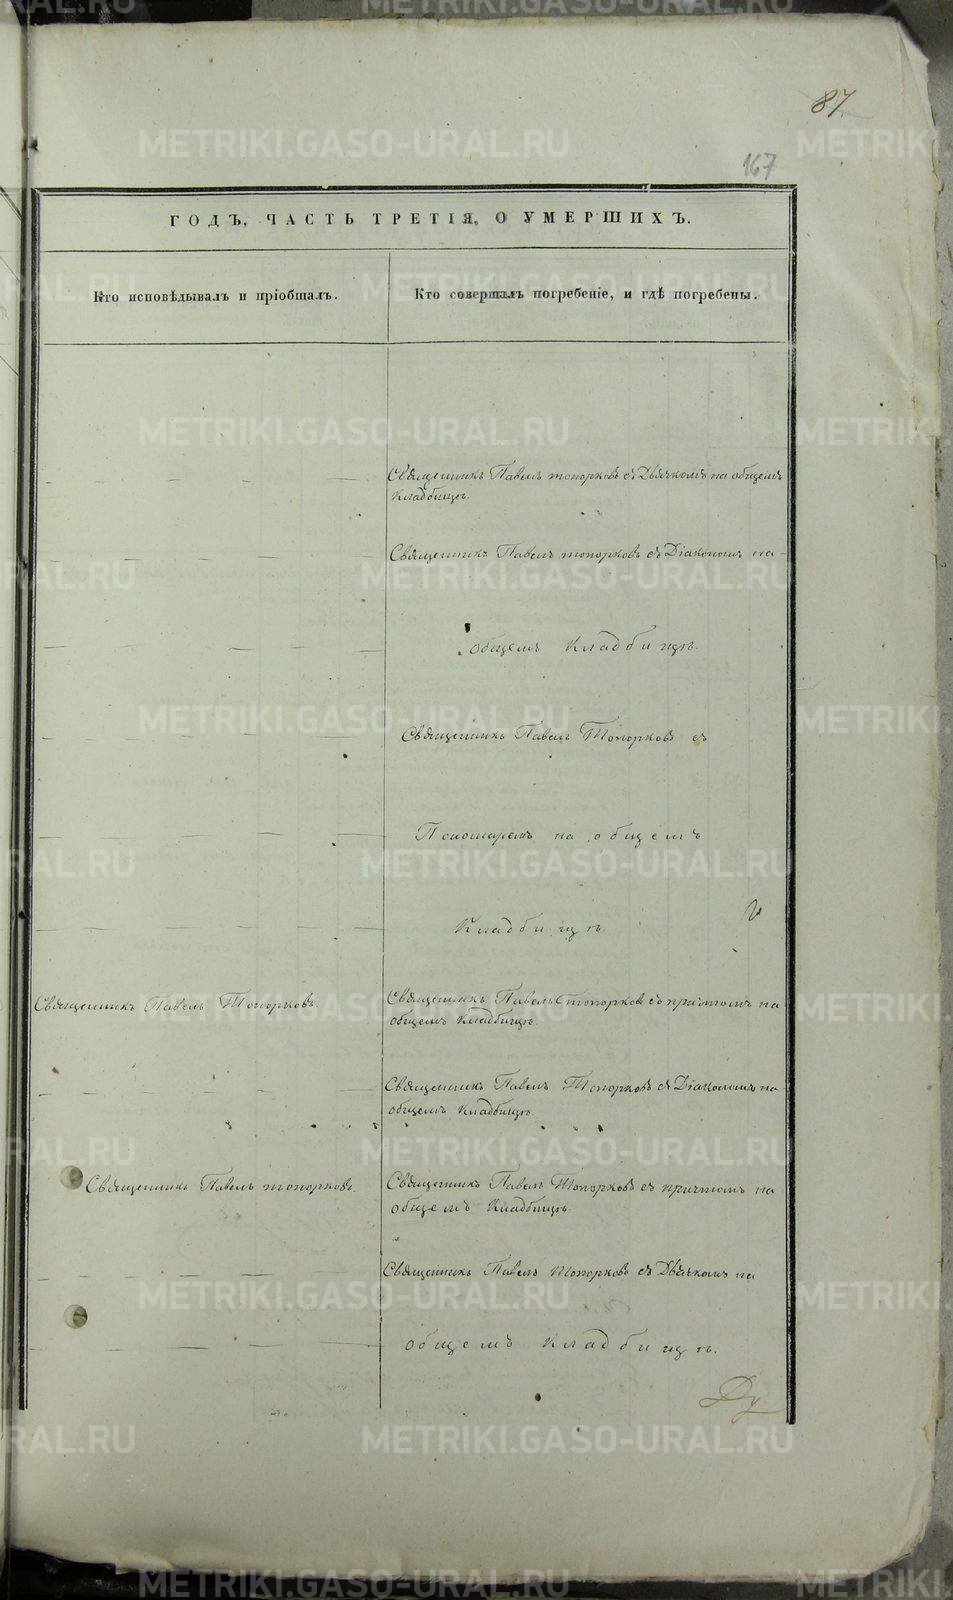 87
167
ГОДЪ, ЧАСТЬ ТРЕТІЯ, О УМЕРШИХЪ.
Кто исповѣдывалъ и пріобщалъ.
Кто совершалъ погребеніе, и гдѣ погребены.
Священникъ Павелъ топорковъ съ Дьячкомъ на общемъ
Кладбищѣ.
Священникъ Павелъ топорковъ съ Діакономъ на
общемъ Кладбищѣ.
Священникъ Павелъ Топорковъ съ
Пономаремъ на общемъ
Кладбищѣ
Священникъ Павелъ Топорковъ.
Священникъ Павелъ топорковъ съ причтомъ на
общемъ Кладбищѣ.
Священникъ Павелъ Топорковъ съ Діакономъ на
общемъ Кладбищѣ.
Священникъ Павелъ топорковъ.
Священникъ Павелъ Топорковъ съ причтомъ на
общемъ Кладбищѣ.
Священникъ Павелъ Топорковъ съ Дьячкомъ на
общемъ Кладбищѣ.
METRIKI.GASO-URAL.RU